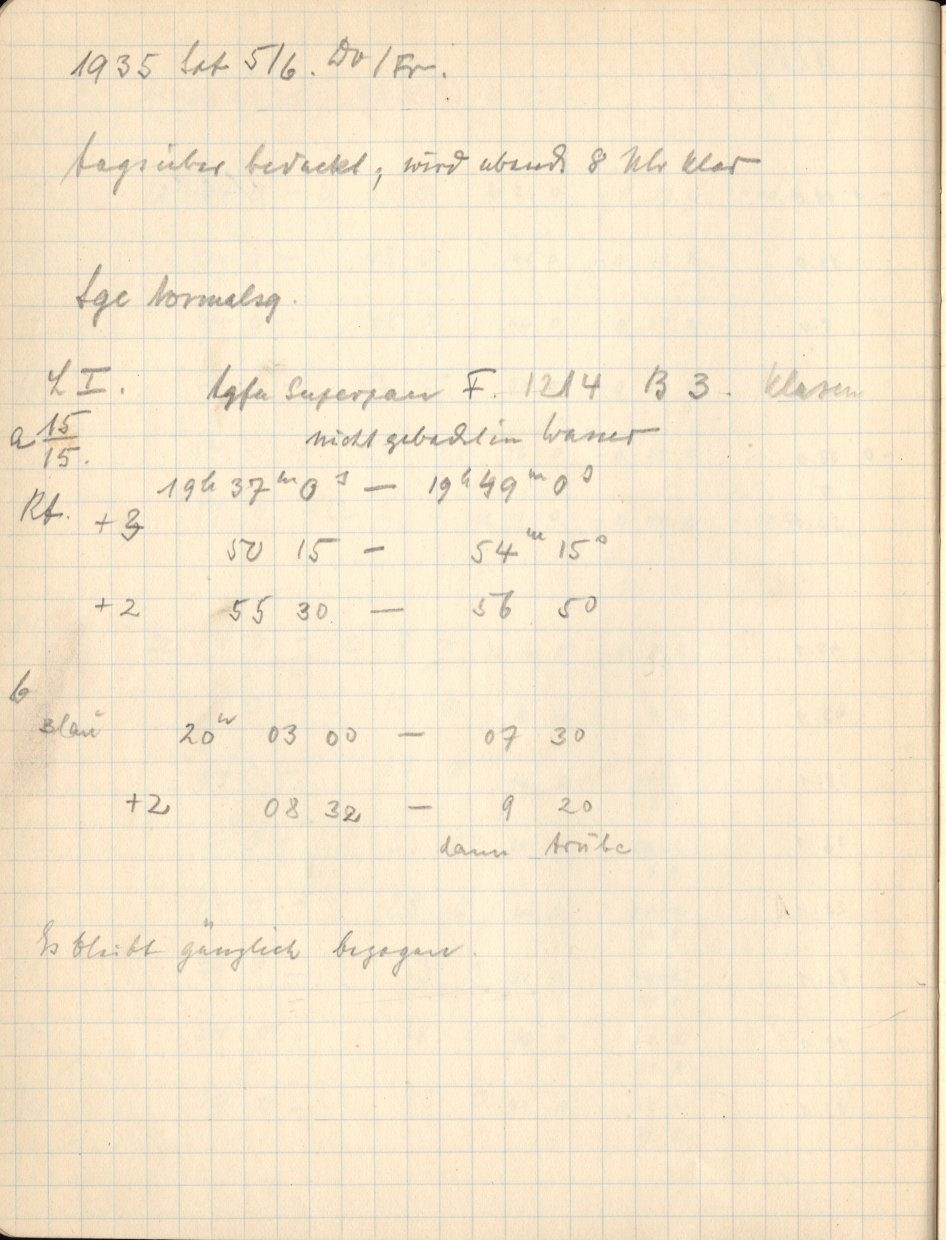 1935 Sept 5/6. Do/Fr.
tagsüber bedeckt; wird abends 8 Uhr klar
Sge Normalsg.
L I. Agfa Superpan F. 1214 B 3. Blasen
a 15/15. nicht gebadet in Wasser
19h 37m 0s — 19h 49m 0s
Rt. +3
50 15 — 54m 15s
+2 55 30 — 56 50
b
Blau 20h 03 00 — 07 30
+2 08 32 — 9 20
dann trübe
Es bleibt gänzlich bezogen.